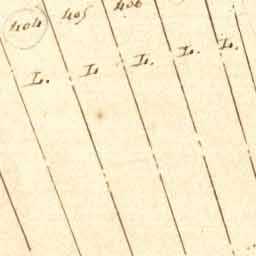 404 405 406
L. L L. L. L.